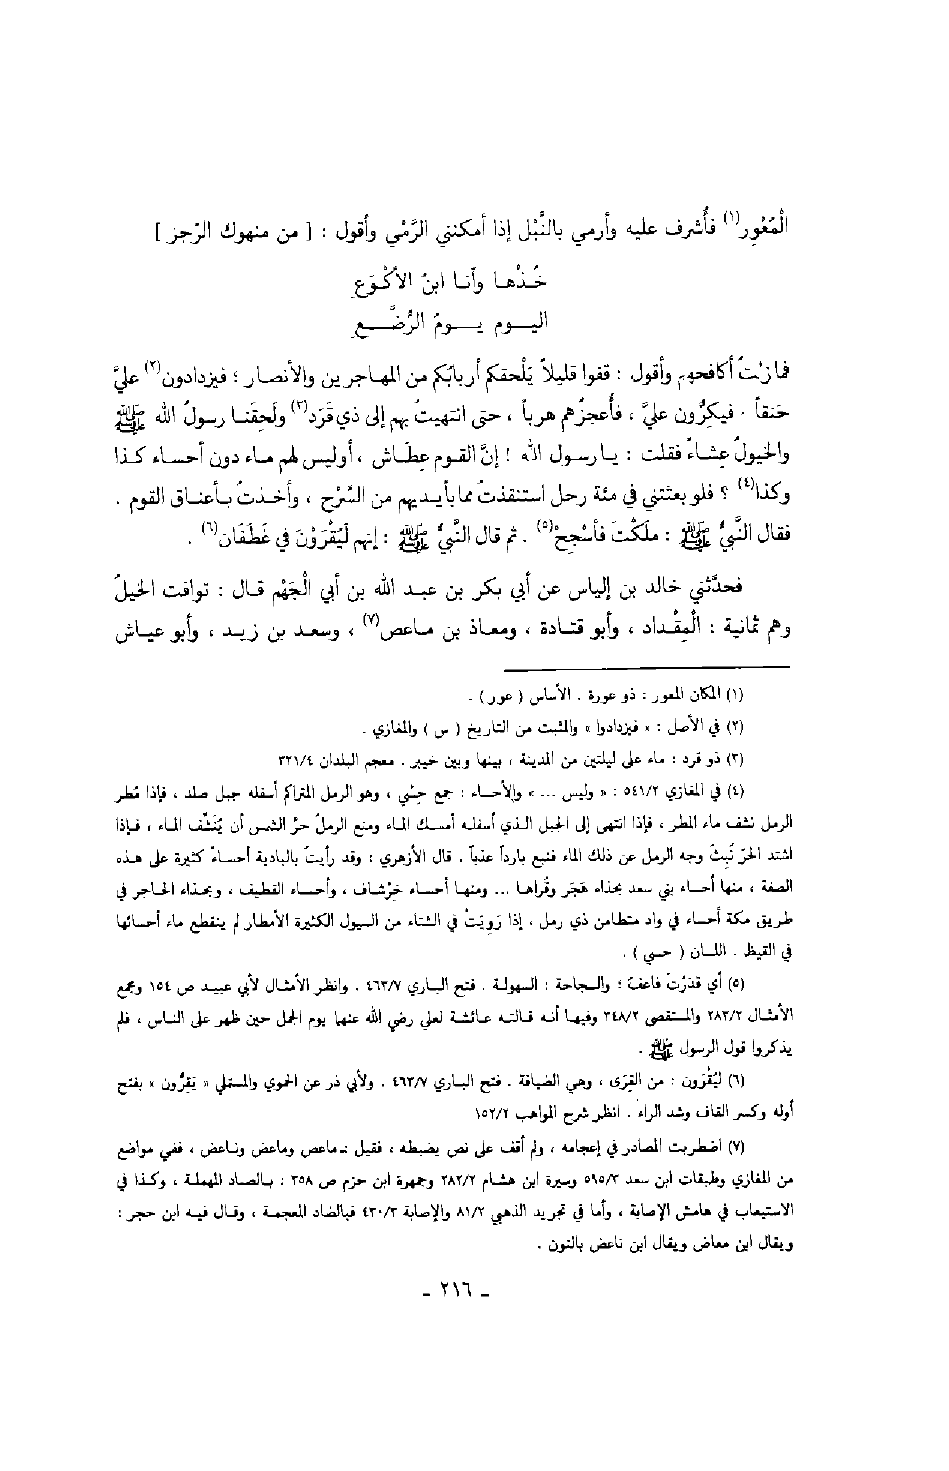 الْمُعْوِر(١) فأُشرف عليه وأرمي بالنَّبْل إذا أمكنني الرَّمْي وأقول : [ من منهوك الرّجز ]
خُـذْهـا وأنـا ابنُ الأكْـوَعِ
اليـــوم يـــومُ الرُّضَّـــعِ
فمازلتُ أكافحهم وأقول : قفوا قليلاً يَلْحقكم أربابُكم من المهاجرين والأنصار ؛ فيزدادون(٢) عليَّ
حَنقاً . فيكرُّون عليَّ ، فأُعجزُهم هرباً ، حتى انتهيتُ بهم إلى ذي قَرَد(٣) ولَحِقَنا رسولُ الله ﷺ
والخيولُ عِشاءً فقلت : يارسول الله ! إنَّ القوم عِطَاش ، أوليس لهم ماء دون أحساء كذا
وكذا(٤) ؟ فلو بعثتني في مئة رجل استنقذتُ مما بأيديهم من السَّرْح ، وأخذتُ بأعناق القوم .
فقال النَّبيُّ ﷺ : ملَكْتَ فأسْجِحْ(٥) . ثم قال النَّبيُّ ﷺ : إنهم لَيُقْرَوْنَ في غَطَفَان(٦) .
فحدَّثني خالد بن إلياس عن أبي بكر بن عبد الله بن أبي الْجَهْم قال : توافت الخيلُ
وهم ثمانية : الْمِقْداد ، وأبو قتادة ، ومعاذ بن ماعص(٧) ، وسعد بن زيد ، وأبو عياش
(١) المكان المعور : ذو عورة . الأساس ( عور ) .
(٢) في الأصل : « فيزدادوا » والمثبت من التاريخ ( س ) والمغازي .
(٣) ذو قرد : ماء على ليلتين من المدينة ، بينها وبين خيبر . معجم البلدان ٣٢١/٤
(٤) في المغازي ٥٤١/٢ : « وليس ... » والأحساء : جمع حِسْي ، وهو الرمل المتراكم أسفله جبل صلد ، فإذا مُطر
الرمل نشف ماء المطر ، فإذا انتهى إلى الجبل الذي أسفله أمسك الماء ومنع الرملُ حرَّ الشمس أن يُنَشِّف الماء ، فإذا
اشتد الحرّ نُبِثَ وجه الرمل عن ذلك الماء فنبع بارداً عذباً . قال الأزهري : وقد رأيتُ بالبادية أحساءً كثيرة على هذه
الصفة ، منها أحساء بني سعد بحذاء هَجَر وقُراها ... ومنها أحساء خِرْشاف ، وأحساء القطيف ، وبحذاء الحاجر في
طريق مكة أحساء في واد متطامن ذي رمل ، إذا رَوِيَتْ في الشتاء من السيول الكثيرة الأمطار لم ينقطع ماء أحسائها
في القيظ . اللسان ( حسي ) .
(٥) أي قدَرْتَ فاعف ؛ والسجاحة : السهولة . فتح الباري ٤٦٣/٧ . وانظر الأمثال لأبي عبيد ص ١٥٤ ومجمع
الأمثال ٢٨٣/٢ والمستقصى ٣٤٨/٢ وفيها أنه قالته عائشة لعلي رضي الله عنها يوم الجمل حين ظهر على الناس ، فلم
يذكروا قول الرسول ﷺ .
(٦) ليُقْرَون : من القِرَى ، وهي الضيافة . فتح الباري ٤٦٣/٧ . ولأبي ذر عن الحموي والمستملي « يَقِرُّون » بفتح
أوله وكسر القاف وشد الراء . انظر شرح المواهب ١٥٢/٢
(٧) اضطربت المصادر في إعجامه ، ولم أقف على نص يضبطه ، فقيل : ماعص وماعض وناعض ، ففي مواضع
من المغازي وطبقات ابن سعد ٥٩٥/٣ وسيرة ابن هشام ٢٨٢/٢ وجمهرة ابن حزم ص ٣٥٨ : بالصاد المهملة ، وكذا في
الاستيعاب في هامش الإصابة ، وأما في تجريد الذهبي ٨١/٢ والإصابة ٤٣٠/٣ فبالضاد المعجمة ، وقال فيه ابن حجر :
ويقال ابن معاض ويقال ابن ناعض بالنون .
- ٢١٦ -